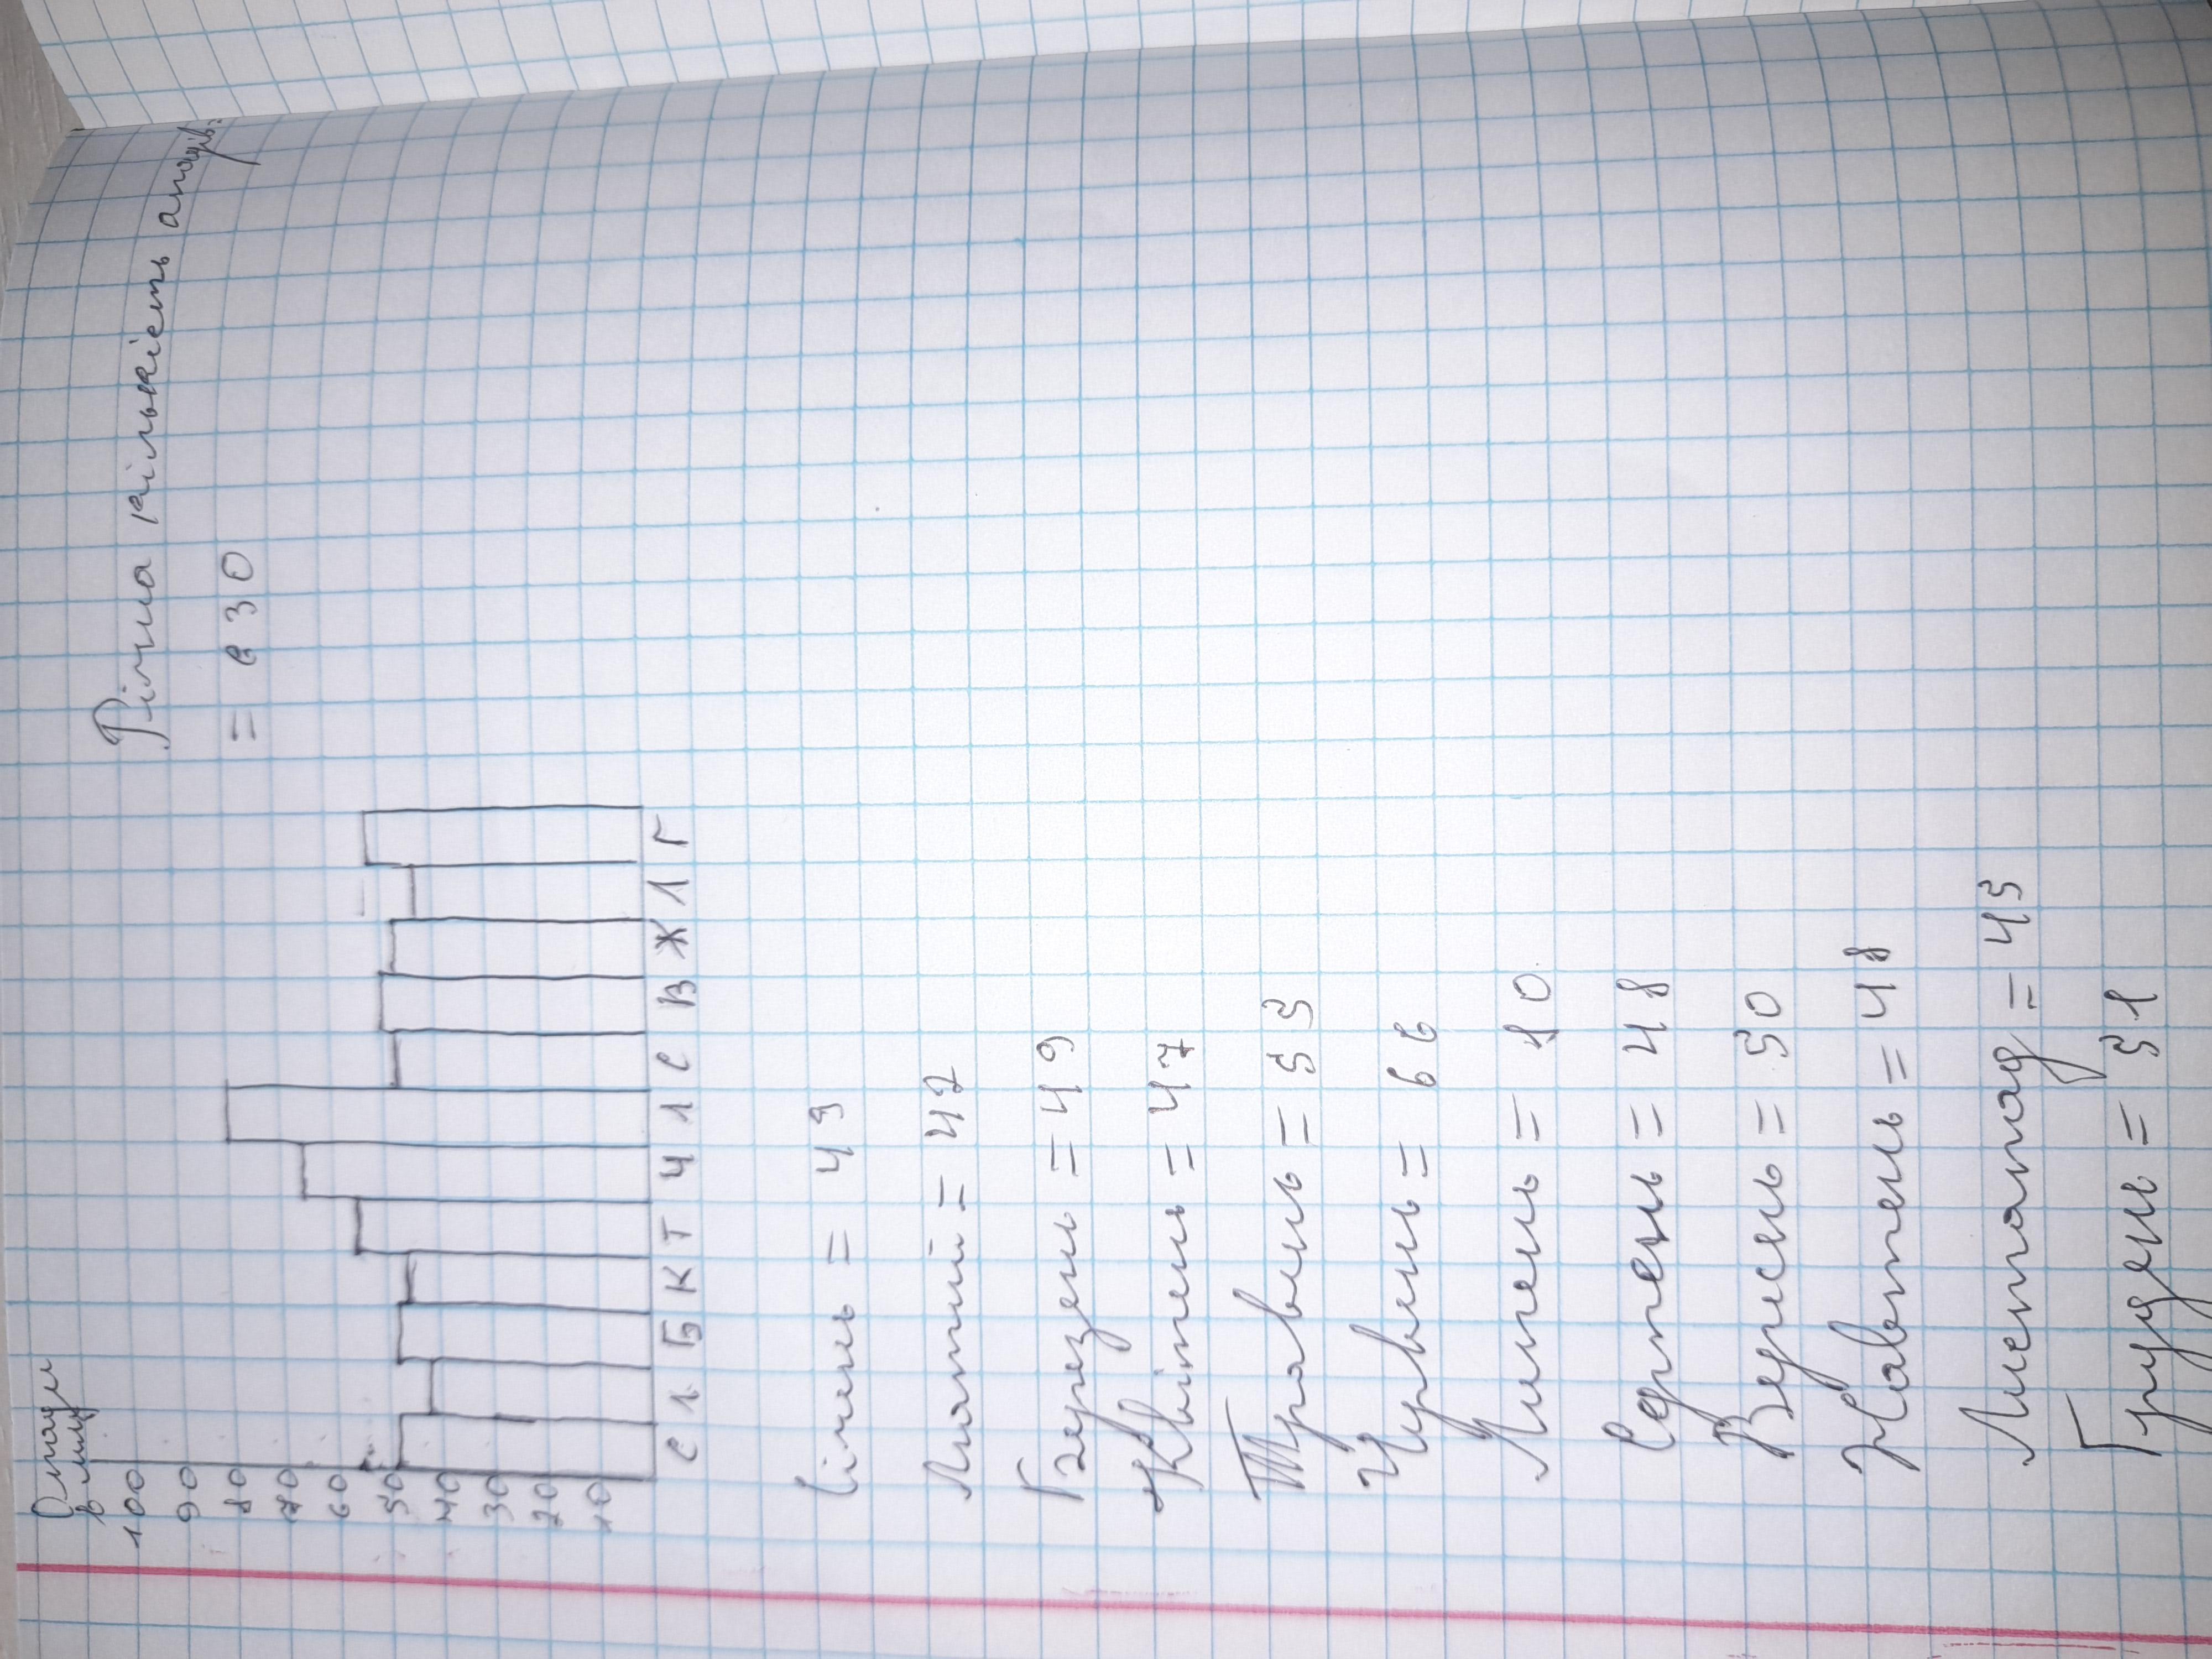 Опади
в мм
100
90
80
70
60
50
40
30
20
10
С Л Б К Т Ч Л С В Ж Л Г
Річна кількість опадів:
= 630
Січень = 49
Лютий = 42
Березень = 49
Квітень = 47
Травень = 55
Червень = 66
Липень = 80
Серпень = 48
Вересень = 50
Жовтень = 48
Листопад = 45
Грудень = 51